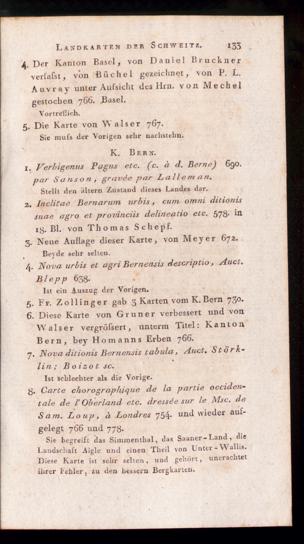 LANDKARTEN DER SCHWEITZ. 133
4. Der Kanton Basel, von Daniel Bruckner
verfaſst, von Büchel gezeichnet, von P. L.
Auvray unter Aufsicht des Hrn. von Mechel
gestochen 766. Basel.
Vortreflich.
5. Die Karte von Walser 767.
Sie muſs der Vorigen sehr nachstehn.
K. BERN.
1. Verbigenus Pagus etc. (c. à d. Berne) 690.
par Sanson, gravée par Lalleman.
Stellt den ältern Zustand dieses Landes dar.
2. Inclitae Bernarum urbis, cum omni ditionis
suae agro et provinciis delineatio etc. 578. in
18. Bl. von Thomas Schepf.
3. Neue Auflage dieser Karte, von Meyer 672.
Beyde sehr selten.
4. Nova urbis et agri Bernensis descriptio, Auct.
Blepp 638.
Ist ein Auszug der Vorigen.
5. Fr. Zollinger gab 3 Karten vom K. Bern 730.
6. Diese Karte von Gruner verbessert und von
Walser vergröſsert, unterm Titel: Kanton
Bern, bey Homanns Erben 766.
7. Nova ditionis Bernensis tabula, Auct. Störk-
lin; Boizot sc.
Ist schlechter als die Vorige.
8. Carte chorographique de la partie occiden-
tale de l'Oberland etc. dressée sur le Msc. de
Sam. Loup, à Londres 754. und wieder auf-
gelegt 766 und 778.
Sie begreift das Simmenthal, das Saaner-Land, die
Landschaft Aigle und einen Theil von Unter-Wallis.
Diese Karte ist sehr selten, und gehört, unerachtet
ihrer Fehler, zu den bessern Bergkarten.